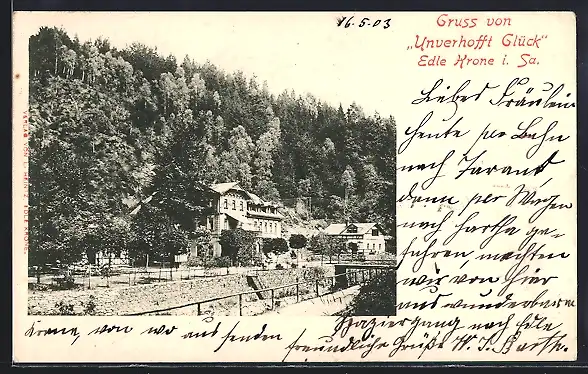 16.5.03
Gruss von
„Unverhofft Glück“
Edle Krone i. Sa.
VERLAG VON L. HEINTZ, EDLE KRONE.
Liebes Fräulein
heute per Bahn
nach Tarant
dann per Wagen
nach Hartha ge-
fahren machten
wir von hier
aus wunderbaren
Spaziergang nach Edle
Krone, von wo aus senden
freundliche Grüße